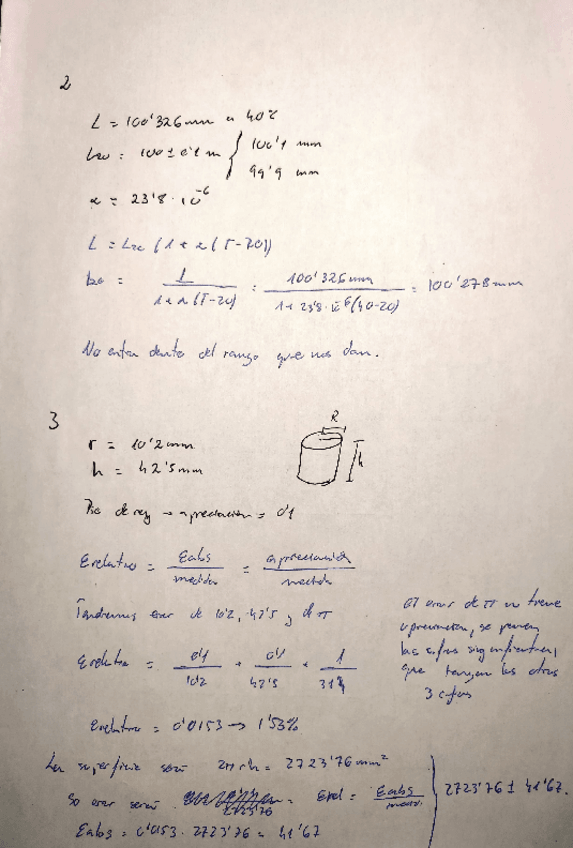 2
L = 100'326 mm a 40ºC
L20 = 100 ± 0'1 m { 100'1 mm
99'9 mm
α = 23'8 · 10^-6
L = L20 (1 + α (T-20))
L20 = L / (1 + α (T-20)) = 100'326 mm / (1 + 23'8 · 10^-6 (40-20)) = 100'278 mm
No entra dentro del rango que nos dan.
3
r = 10'2 mm
h = 42'5 mm
R
h
Pie de rey → apreciación = 0'1
Erelativo = Eabs / medida = apreciación / medida
Tendremos error de 10'2, 42'5 y de π
Erelativo = 0'1 / 10'2 + 0'1 / 42'5 + 1 / 314
El error de π no tiene
apreciación, se ponen
las cifras significativas,
que tengan las otras
3 cifras
Erelativo = 0'0153 → 1'53%
La superficie será 2πrh = 2723'76 mm²
So error será = Erel = Eabs / medida
Eabs = 0'0153 · 2723'76 = 41'67
2723'76 ± 41'67.